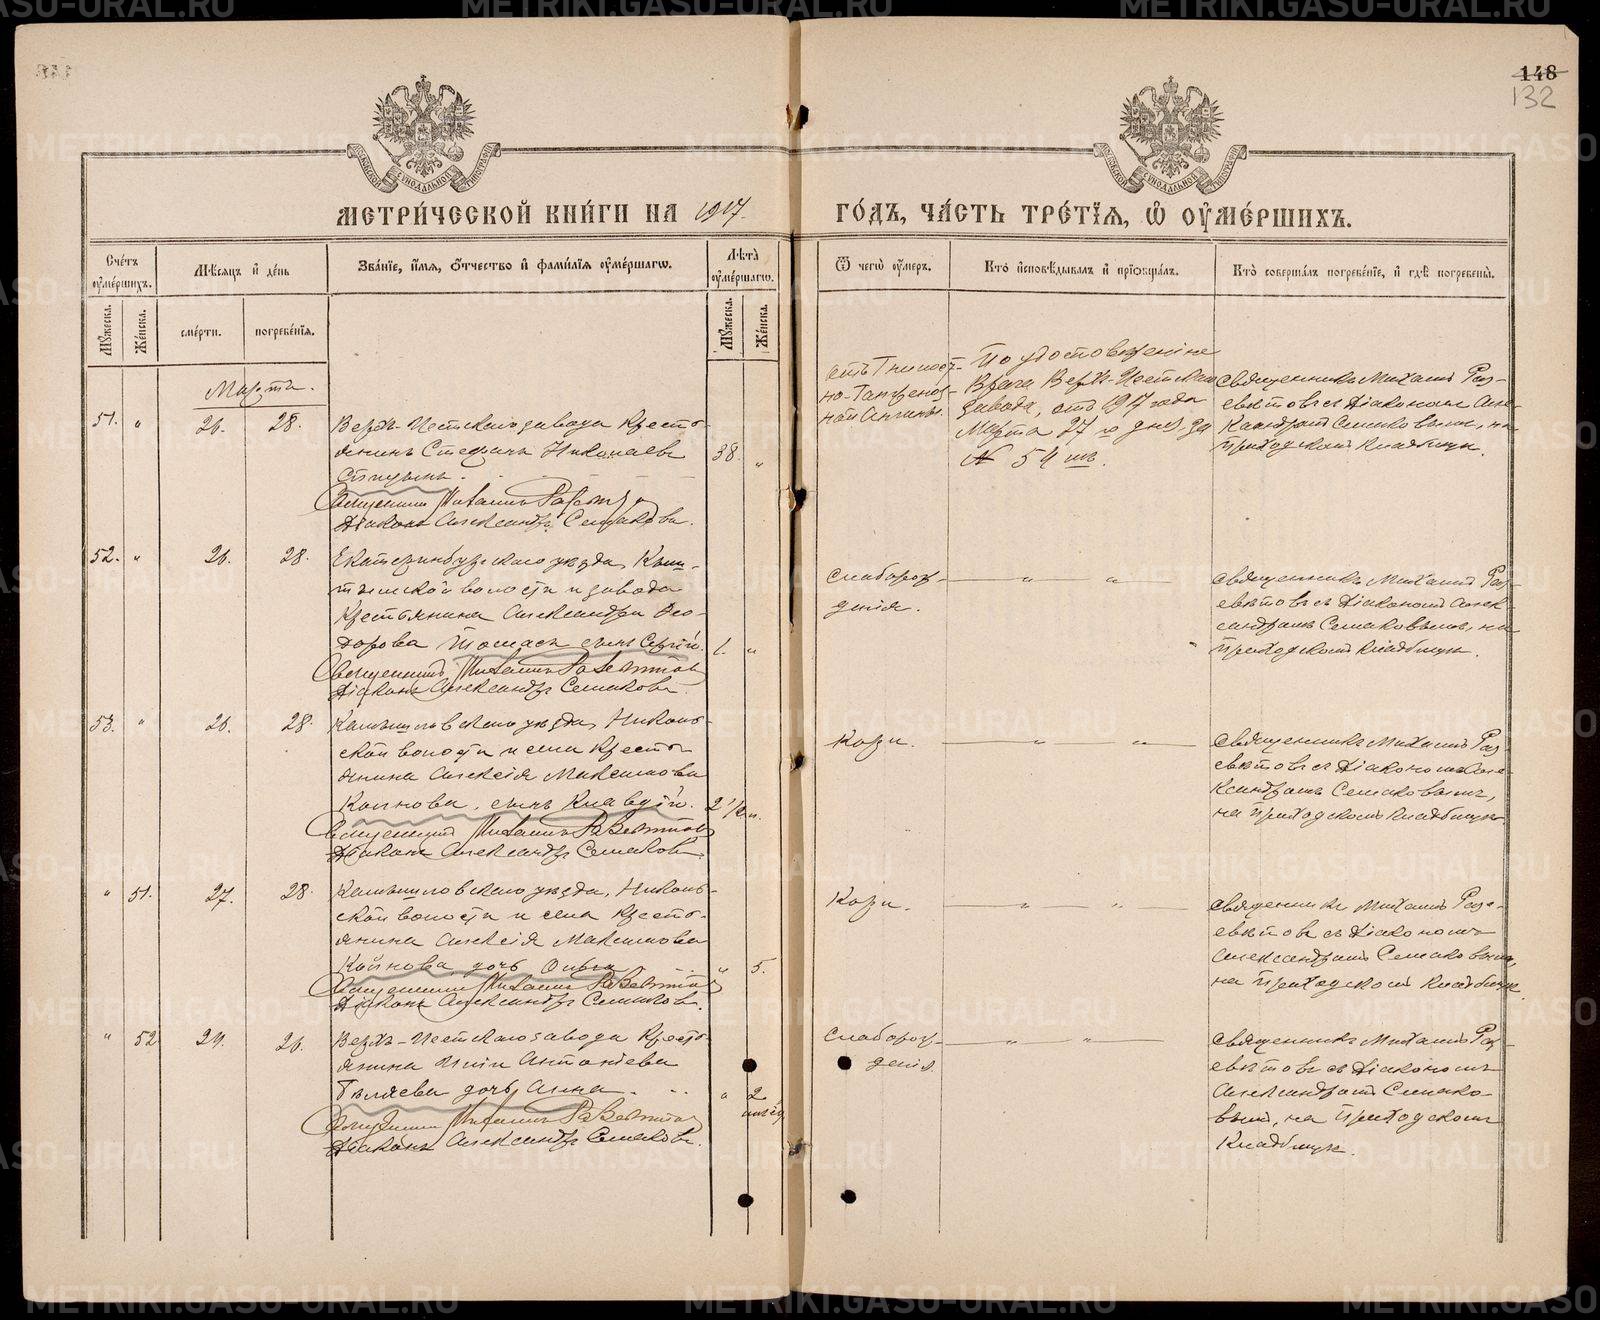 148
132
МЕТРИ́ЧЕСКОЙ КНИ́ГИ НА 1917
ГО́ДЪ, ЧА́СТЬ ТРЕ́ТІЯ, Ѿ ОУМЕ́РШИХЪ.
Сче́тъ оумершихъ.
Мѣсяцъ и день
Зва́ніе, и́мя, о́тчество и фами́лія оуме́ршаго.
Лѣта оуме́ршаго.
Мужеска.
Женска.
сме́рти.
погребе́нія.
Мужеска.
Женска.
Ѿ чего оумеръ.
Кто исповѣдывалъ и пріобщалъ.
Кто совершалъ погребеніе, и гдѣ погребены.
Марта.
51. " 26. 28.
Верхъ-Исетскаго завода кресть-
янинъ Стефанъ Николаевъ
38. "
Священникъ Михаилъ
Діаконъ Александръ Семаковъ.
ной Ангины.
По удостовѣренію
Врача Верхъ-Исетскаго
завода, отъ 1917 года
Марта 27 го дня, за
№ 54 мъ.
Священникъ Михаилъ Раз-
евѣтовъ съ Діакономъ Але-
ксандромъ Семаковымъ, на
Приходскомъ кладбищѣ.
52. " 26. 28.
Екатеринбургскаго уѣзда, Кыш-
тымской волости и завода
крестьянина Александра Ѳео-
дорова сынъ Сергій.
1. "
Священникъ Михаилъ
Діаконъ Александръ Семаковъ.
слаборож-
денія.
" "
Священникъ Михаилъ Раз-
евѣтовъ съ Діакономъ Алек-
сандромъ Семаковымъ, на
Приходскомъ кладбищѣ.
53. " 26. 28.
Камышловскаго уѣзда, Николь-
ской волости и села кресть-
янина Алексія Максимова
Коинова, сынъ Клавдій.
2 1/2 "
Священникъ Михаилъ
Діаконъ Александръ Семаковъ.
Кори.
" "
Священникъ Михаилъ Раз-
евѣтовъ съ Діакономъ Але-
ксандромъ Семаковымъ,
на Приходскомъ кладбищѣ.
" 51. 27. 28.
Камышловскаго уѣзда, Николь-
ской волости и села кресть-
янина Алексія Максимова
Коинова, дочь Ольга
" 5.
Священникъ Михаилъ
Діаконъ Александръ Семаковъ.
Кори.
" "
Священникъ Михаилъ Разс-
евѣтовъ съ Діакономъ
Александромъ Семаковымъ,
на Приходскомъ кладбищѣ.
" 52 24. 26.
Верхъ-Исетскаго завода кресть-
янина Антоніева
Бѣляева дочь, Анна
" 2
мѣсяц
Священникъ Михаилъ
Діаконъ Александръ Семаковъ.
Слаборож-
денія.
" "
Священникъ Михаилъ Раз-
евѣтовъ съ Діакономъ
Александромъ Семако-
вымъ, на Приходскомъ
кладбищѣ.
METRIKI.GASO-URAL.RU